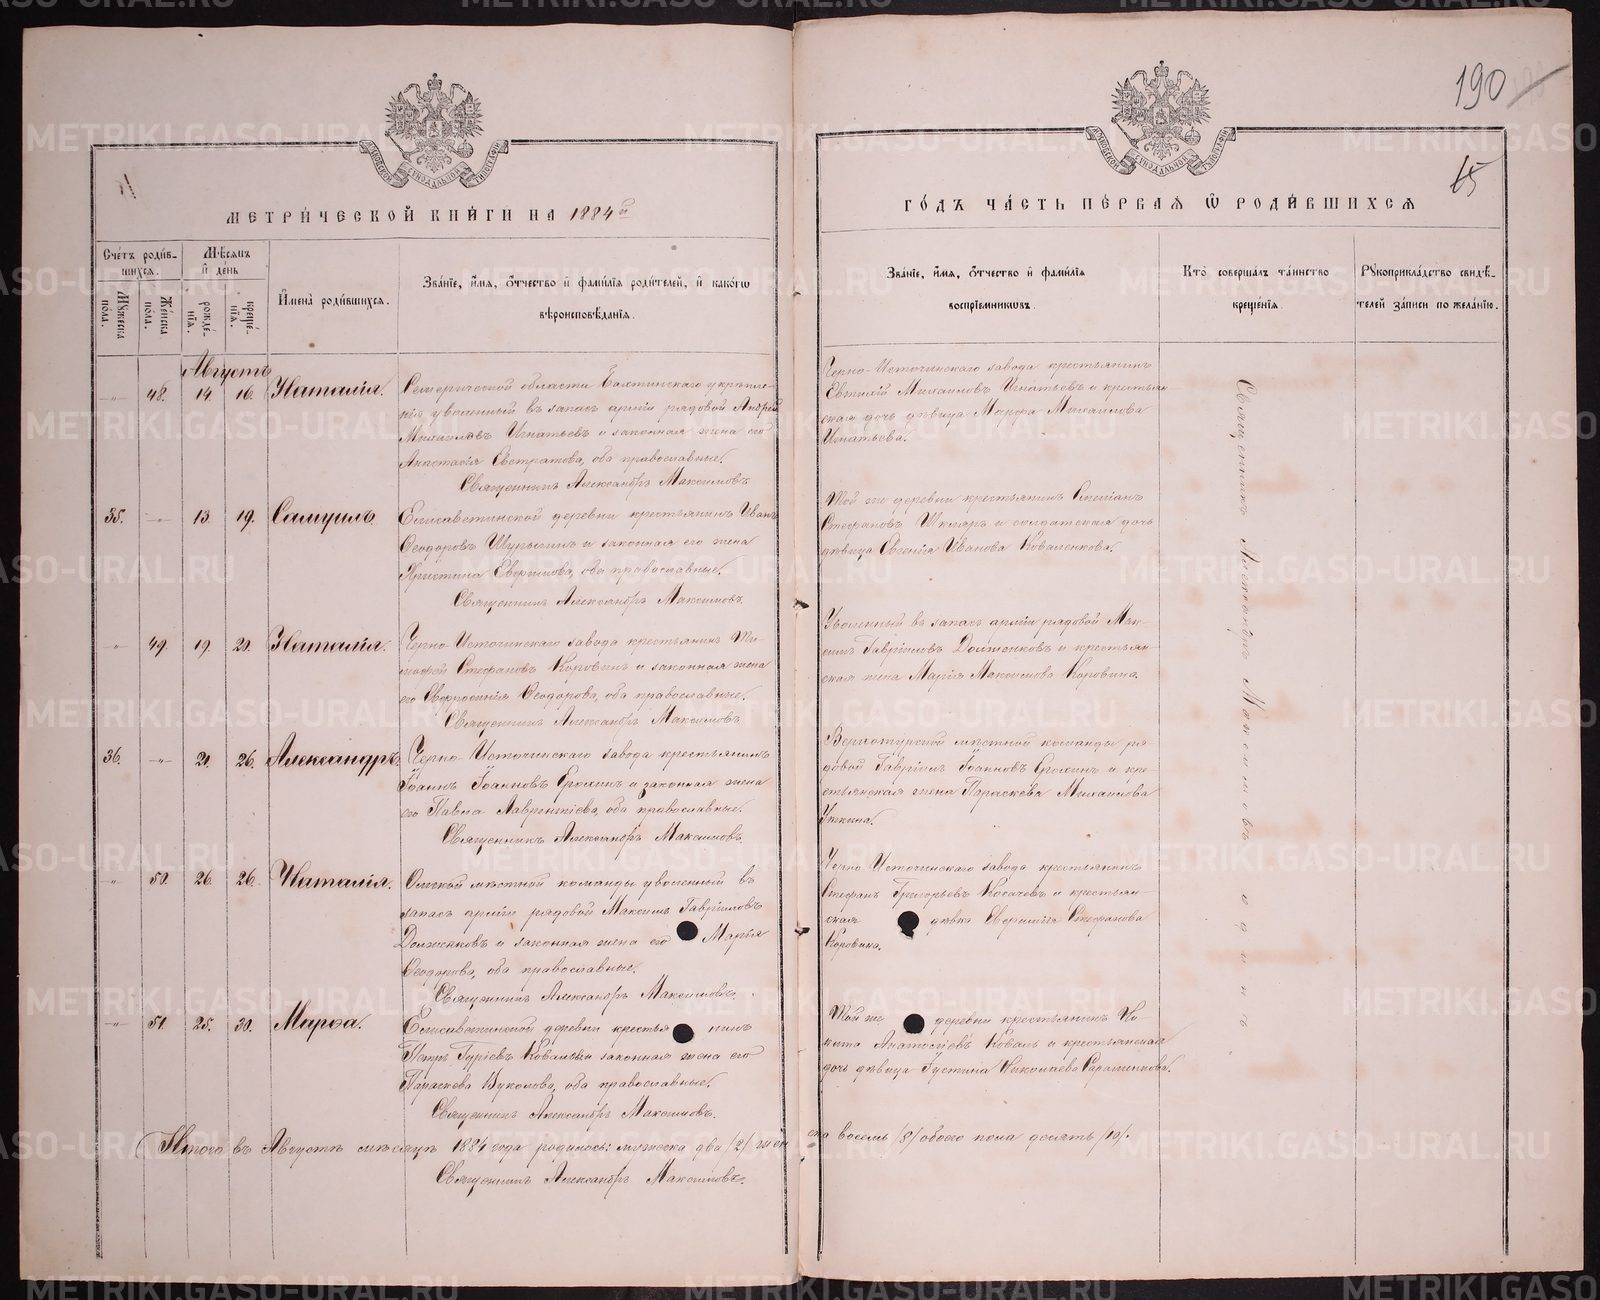 190
15
МЕТРИ́ЧЕСКОЙ КНИ́ГИ НА 1884й
ГО́ДЪ ЧА́СТЬ ПЕ́РВАѦ Ѡ РОДИ́ВШИХСѦ
Сче́тъ роди́в-
шихсѧ.
Мꙋжеска пола.
Же́нска по́ла.
Мѣ́сѧцъ
и҆ де́нь
рожде́-
нїѧ.
креще́-
нїѧ.
И҆мена̀ роди́вшихсѧ.
Зва́нїе, и҆́мѧ, ѻ҆́тчество и҆ фами́лїѧ роди́телей, и҆ како́гѡ
вѣроисповѣ́данїѧ.
Зва́нїе, и҆́мѧ, ѻ҆́тчество и҆ фами́лїѧ
воспрїе́мниковъ.
Кто̀ соверша́лъ та́инство
креще́нїѧ.
Рꙋкоприкла́дство свидѣ́-
телей за́писи по жела́нїю.
Августъ
48. 14 16. Наталія.
Семиреческой области Бахтинскаго укрепле-
нія уволенный въ запасъ арміи рядовой Андрей
Михаиловъ Игнатьевъ и законная жена его
Анастасія Евстратова, оба православные.
Священникъ Александръ Максимовъ
Черно-Источинскаго завода крестьянинъ
Евтихій Михаиловъ Игнатьевъ и крестьян-
ская дочь дѣвица Марѳа Михаилова
Игнатьева.
35. 13. 19. Самуилъ.
Елисаветинской деревни крестьянинъ Иванъ
Ѳеодоровъ и законная его жена
Христина Ефримова, оба православные.
Священникъ Александръ Максимовъ.
Той же деревни крестьянинъ
Стефановъ Шкляръ и солдатская дочь
дѣвица Евгенія Иванова Коваленкова.
49. 19. 20. Наталія.
Черно-Источинскаго завода крестьянинъ Ти-
моѳей Стефановъ Коровинъ и законная жена
его Евфросинія Ѳеодорова, оба православные.
Священникъ Александръ Максимовъ
Уволенный въ запасъ арміи рядовой Мак-
симъ Гавріиловъ Долженковъ и крестьян-
ская жена Марія Максимова Коровина.
36. 21. 26. Александръ.
Черно-Источинскаго завода крестьянинъ
Іоаннъ Іоанновъ Ерохинъ и законная жена
его Павла Лаврентіева, оба православные.
Священникъ Александръ Максимовъ.
Верхотурской мѣстной команды ря-
довой Гавріилъ Іоанновъ Ерохинъ и кре-
стьянская жена Параскева Михаилова
Уткина.
50. 26. 26. Наталія.
Омской мѣстной команды уволенный въ
запасъ арміи рядовой Максимъ Гавріиловъ
Долженковъ и законная жена его Марія
Ѳеодорова, оба православные.
Священникъ Александръ Максимовъ.
Черно-Источинскаго завода крестьянинъ
Стефанъ Григорьевъ Косачевъ и крестьян-
ская дѣвка Стефанова
Коровина.
51. 25. 30. Марѳа.
Елисаветинской деревни крестьянинъ
Петръ Гуріевъ Коваль и законная жена его
Параскева Вуколова, оба православные.
Священникъ Александръ Максимовъ.
Той же деревни крестьянинъ Ни-
кита Коваль и крестьянская
дочь дѣвица Іустина Николаева
Священникъ Александръ Максимовъ одинъ
Итого въ Августѣ мѣсяцѣ 1884 года родилось: мужеска два /2/ женска восемь /8/ обоего пола десять /10/.
Священникъ Александръ Максимовъ.
METRIKI.GASO-URAL.RU